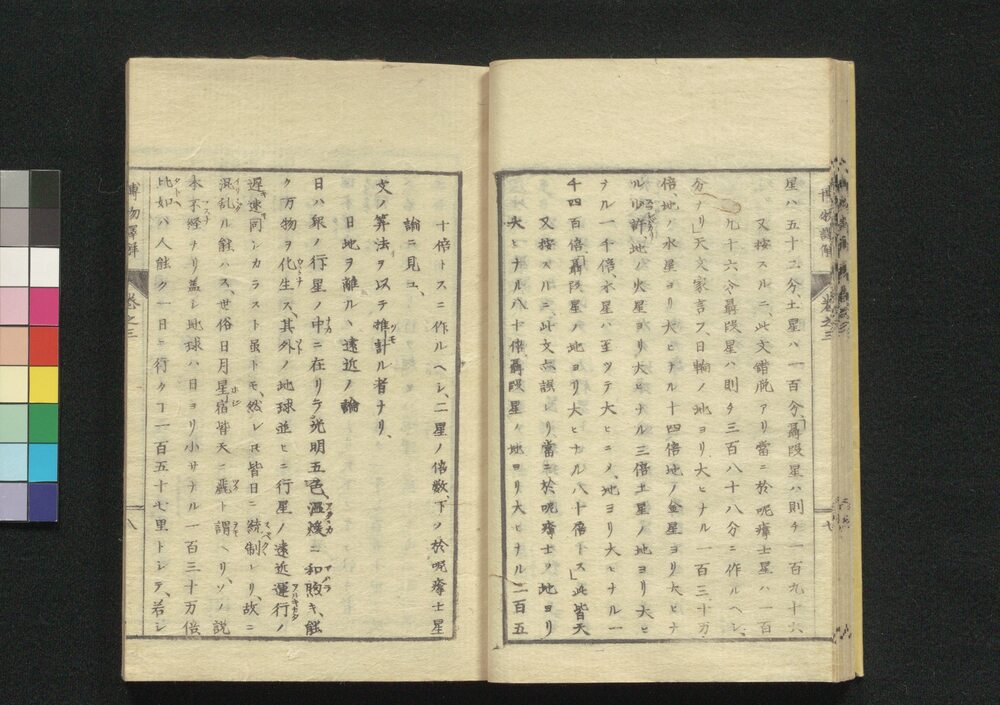 星ハ五十二分、土星ハ一百分、聶段星ハ則チ一百九十六、
又按スルニ、此文錯脱アリ當ニ於呢瘞士星ハ一百
九十六分聶段星ハ則チ三百八十八分ニ作ルヘシ、
分ナリ」天文家言フ、日輪ノ地ヨリ大ヒナル一百三十万、
倍地ノ水星ヨリ大ヒナル十四倍地ノ金星ヨリ大ヒナ
ル少許地ノ火星ヨリ大ヒナル三倍土星ノ地ヨリ大ヒ
ナル一千倍、木星ハ至ツテ大ヒニメ、地ヨリ大ヒナル一
千四百倍、聶段星ノ地ヨリ大ヒナル八十倍トス」此皆天
又按スルニ、此文亦誤レリ當ニ於呢瘞士ノ地ヨリ
大ヒナル八十倍、聶段星ノ地ヨリ大ヒナル二百五
博物譯解 巻之三 七
十倍トスニ作ルヘシ、二星ノ倍数、下ノ於呢瘞士星
論ニ見ユ、
文ノ算法ヲ以テ推計ル者ナリ、
日地ヲ離ル丶遠近ノ論
日ハ衆ノ行星ノ中ニ在リテ光明五色、温煖ニ和煦キ、能
ク万物ヲ化生ス、其外ノ地球並ヒニ行星ノ遠近運行ノ
遅速同シカラスト虽トモ、然レヒ皆日ニ統制レリ、故ニ
混乱ル能ハス、世俗日月星宿皆天ニ麗ト謂ヘリ、ソノ説
本不経ナリ蓋シ地球ハ日ヨリ小サナル一百三十万倍
比如ハ人能ク一日ニ行クヿ一百五十七里トシテ、若シ
博物譯解 巻之三 八